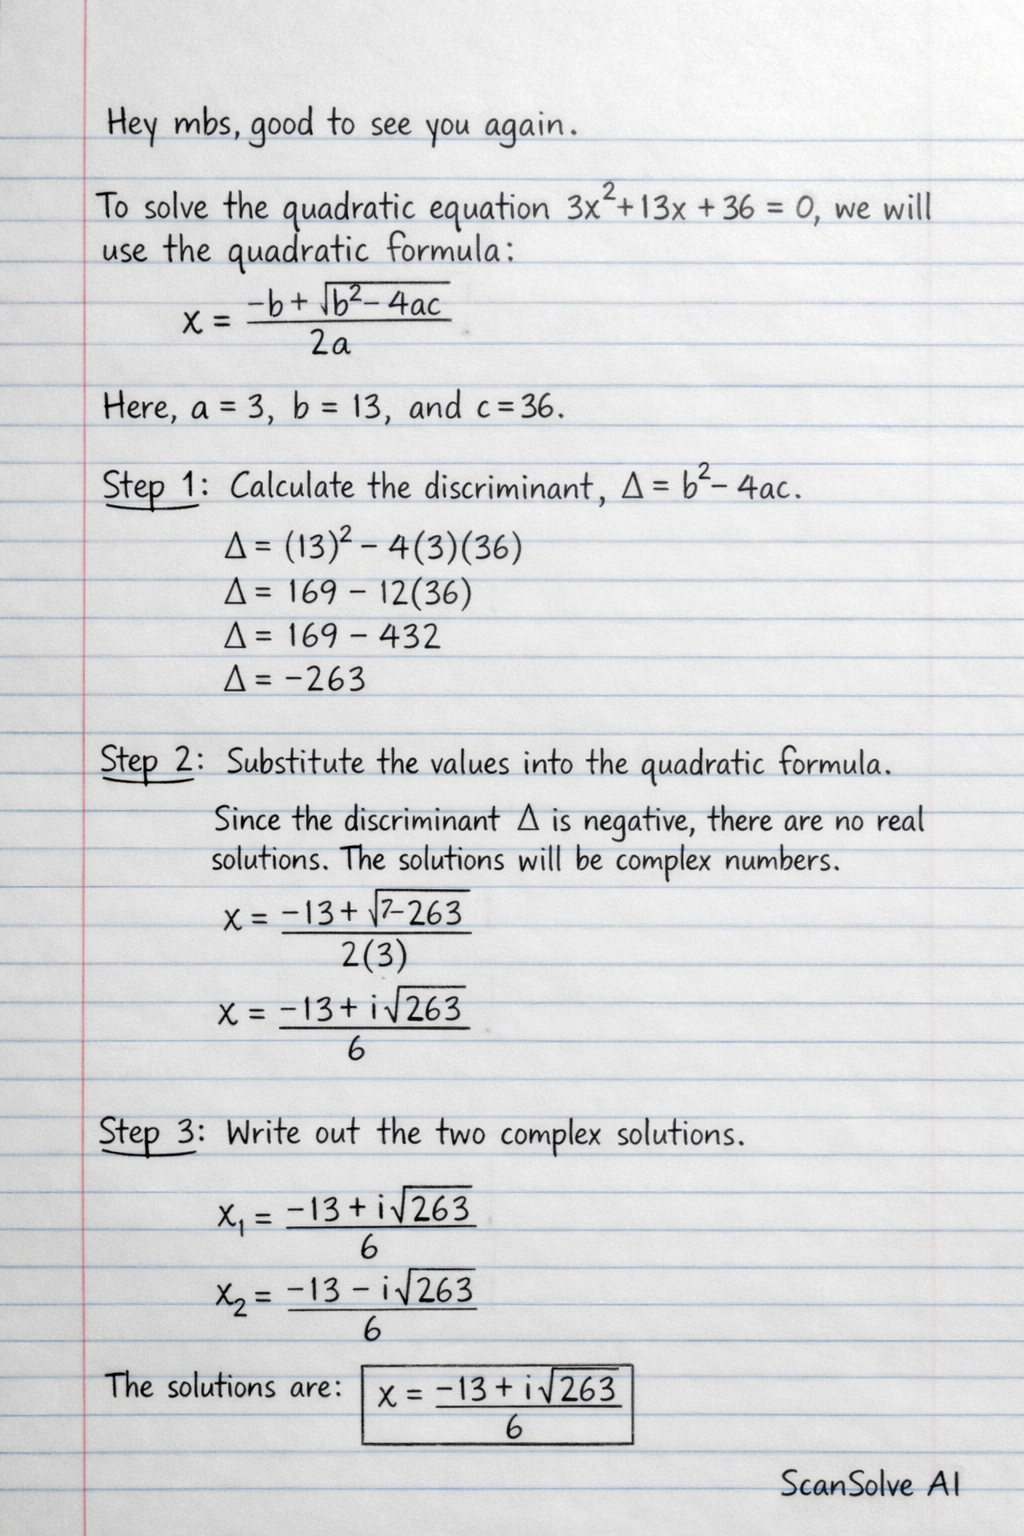 Hey mbs, good to see you again.
To solve the quadratic equation 3x²+13x + 36 = 0, we will
use the quadratic formula:
x = (-b + √(b² - 4ac)) / 2a
Here, a = 3, b = 13, and c = 36.
Step 1: Calculate the discriminant, Δ = b² - 4ac.
Δ = (13)² - 4(3)(36)
Δ = 169 - 12(36)
Δ = 169 - 432
Δ = -263
Step 2: Substitute the values into the quadratic formula.
Since the discriminant Δ is negative, there are no real
solutions. The solutions will be complex numbers.
x = (-13 + √(7-263)) / 2(3)
x = (-13 + i√263) / 6
Step 3: Write out the two complex solutions.
x₁ = (-13 + i√263) / 6
x₂ = (-13 - i√263) / 6
The solutions are: x = (-13 + i√263) / 6
ScanSolve AI